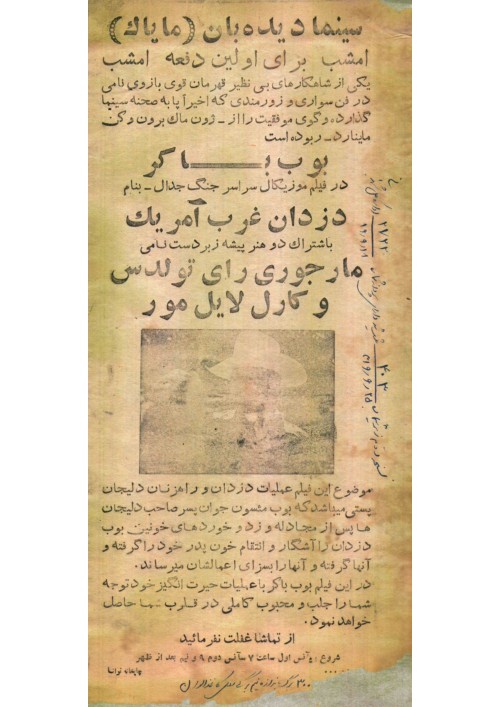 سینما دیده بان (مایاك)
امشب برای اولین دفعه امشب
یکی از شاهکارهای بی نظیر قهرمان قوی بازوی نامی
در فن سواری و زورمندی که اخیراً پا به صحنه سینما
گذارده و گوی موفقیت را از - ژون ماك برون و کن
ماینارد - ربوده است
بوب باکر
در فیلم موزیکال سراسر جنگ جدال - بنام
دزدان غرب آمریك
باشتراك دو هنر پیشه زبردست نامی
مارجوری رای تولدس
و کارل لایل مور
موضوع این فیلم عملیات دزدان و راهزنان دلیجان
پستی میباشد که بوب مئسون جوان پسر صاحب دلیجان
ها پس از مجادله و زد و خوردهای خونین بوب
دزدان را آشکار و انتقام خون پدر خود را گرفته و
آنها گرفته و آنها را بسزای اعمالشان میرساند.
در این فیلم بوب باکر با عملیات حیرت انگیز خود توجه
شما را جلب و محبوب کاملی در قارب شما حاصل
خواهد نمود.
از تماشا غفلت نفرمائید
شروع: سآنس اول ساعت ۷ سآنس دوم ۹ و نیم بعد از ظهر
چاپخانه
۲۷۲۲
۴۰۳
۳۰۰